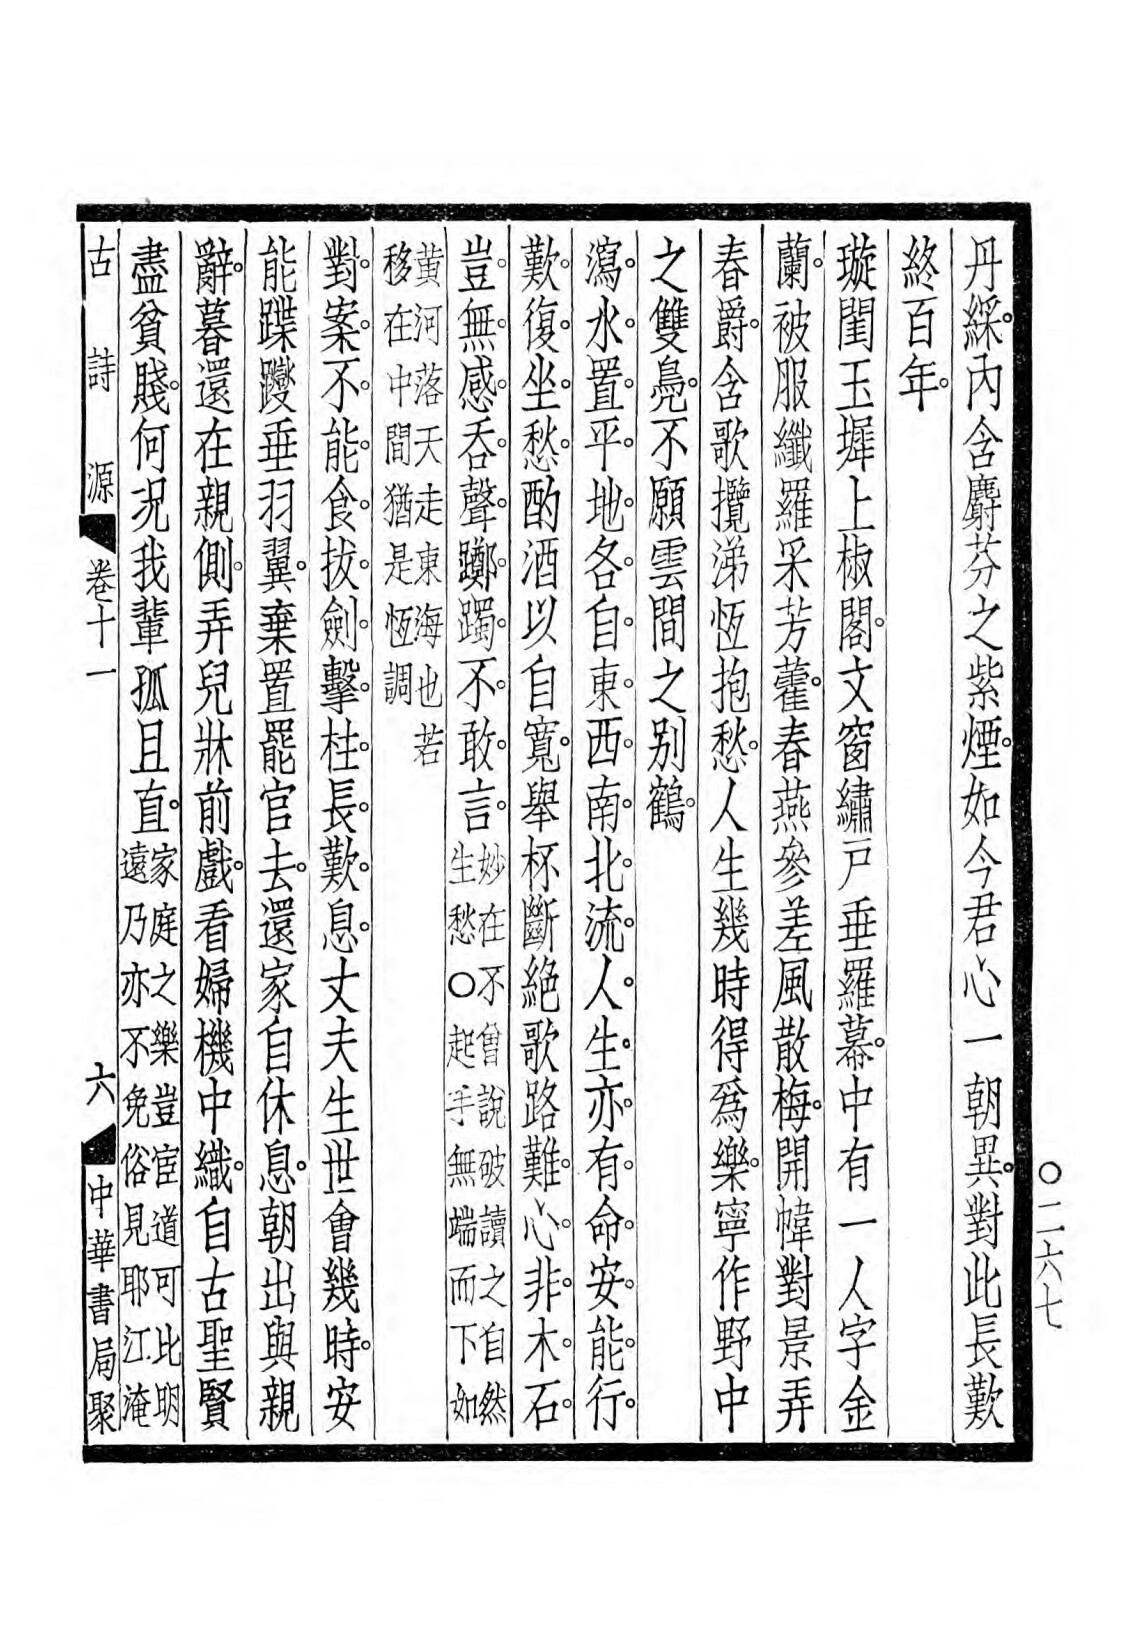 丹綵。內含麝芬之紫煙。如今君心一朝異。對此長歎
終百年。
璇閨玉墀上椒閣。文窗繡戶垂羅幕。中有一人字金
蘭。被服纖羅采芳藿。春燕參差風散梅。開幃對景弄
春爵。含歌攬涕恆抱愁。人生幾時得爲樂。寧作野中
之雙鳧。不願雲間之別鶴。
瀉。水。置。平。地。各。自。東。西。南。北。流。人。生。亦。有。命。安。能。行。
歎。復。坐。愁。酌酒以自寬。舉杯斷絕歌路難。心。非。木。石。
豈。無。感。吞。聲。躑。躅。不。敢。言。妙在不曾說破讀之自然
生愁○起手無端而下如
黃河落天走東海也若
移在中間猶是恆調
對。案。不。能。食。拔。劍。擊。柱。長。歎。息。丈夫生世會幾時。安
能蹀躞垂羽翼。棄置罷官去。還家自休息。朝出與親
辭。暮還在親側。弄兒牀前戲。看婦機中織。自古聖賢
盡貧賤。何況我輩孤且直。家庭之樂豈宦途可比明
遠乃亦不免俗見耶江淹
古詩源 卷十一 六 中華書局聚
○二六七